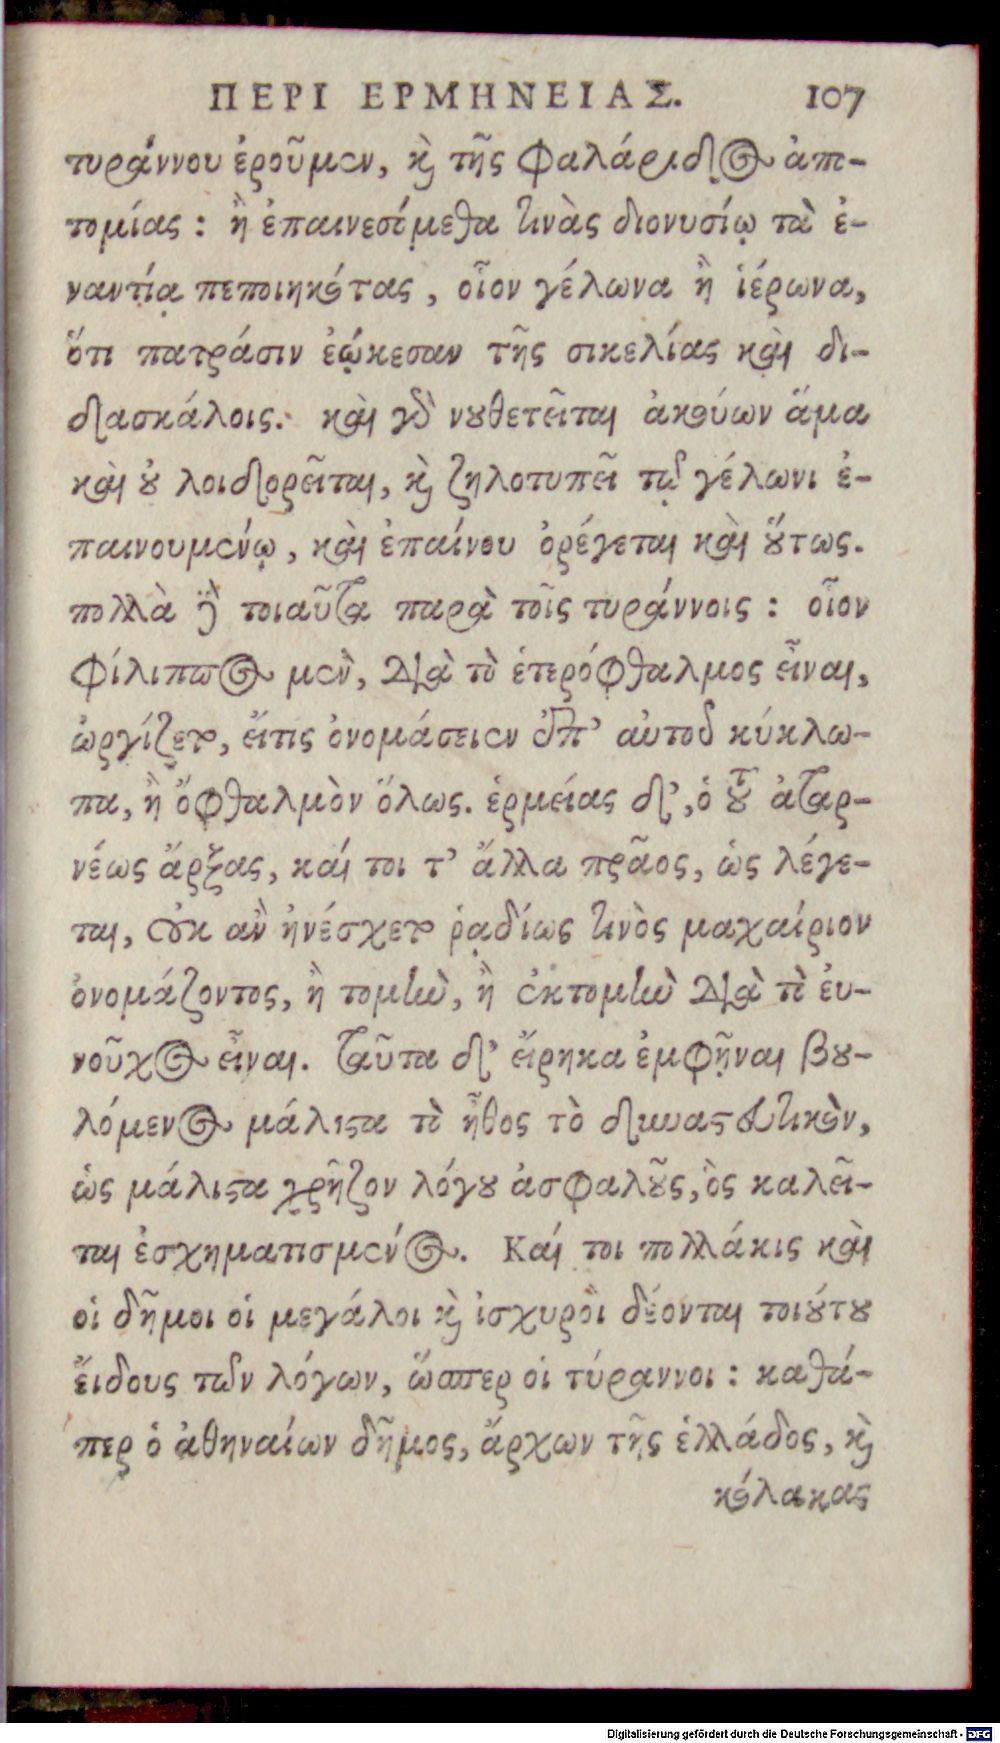 ΠΕΡΙ ΕΡΜΗΝΕΙΑΣ. 107
τυράννου ἐροῦμεν, καὶ τῆς Φαλάριδος ἀπο-
τομίας : ἢ ἐπαινεσόμεθα τινὰς διονυσίῳ τὰ ἐ-
ναντία πεποιηκότας, οἷον γέλωνα ἢ ἱέρωνα,
ὅτι πατράσιν ἐῴκεσαν τῆς σικελίας καὶ δι-
δασκάλοις. καὶ γὰρ νουθετεῖται ἀκούων ἅμα
καὶ οὐ λοιδορεῖται, καὶ ζηλοτυπεῖ τῷ γέλωνι ἐ-
παινουμένῳ, καὶ ἐπαίνου ὀρέγεται καὶ οὕτως.
πολλὰ δὲ τοιαῦτα παρὰ τοῖς τυράννοις : οἷον
Φίλιππος μὲν, διὰ τὸ ἑτερόφθαλμος εἶναι,
ὠργίζετο, εἴτις ὀνομάσειεν ἐπ' αὐτοῦ κύκλω-
πα, ἢ ὀφθαλμὸν ὅλως. ἑρμείας δ', ὁ τοῦ ἀταρ-
νέως ἄρξας, καί τοι τ' ἄλλα πρᾶος, ὡς λέγε-
ται, οὐκ ἂν ἠνέσχετο ῥᾳδίως τινὸς μαχαίριον
ὀνομάζοντος, ἢ τομὴν, ἢ ἐκτομὴν διὰ τὸ ἐυ-
νοῦχος εἶναι. ταῦτα δ' εἴρηκα ἐμφῆναι βου-
λόμενος μάλιστα τὸ ἦθος τὸ δυναστευτικὸν,
ὡς μάλιστα χρῆζον λόγου ἀσφαλοῦς, ὃς καλεῖ-
ται ἐσχηματισμένος. Καί τοι πολλάκις καὶ
οἱ δῆμοι οἱ μεγάλοι καὶ ἰσχυροὶ δέονται τοιούτου
ἔιδους τῶν λόγων, ὥσπερ οἱ τύραννοι : καθά-
περ ὁ ἀθηναίων δῆμος, ἄρχων τῆς ἑλλάδος, καὶ
κόλακας
Digitalisierung gefördert durch die Deutsche Forschungsgemeinschaft - DFG